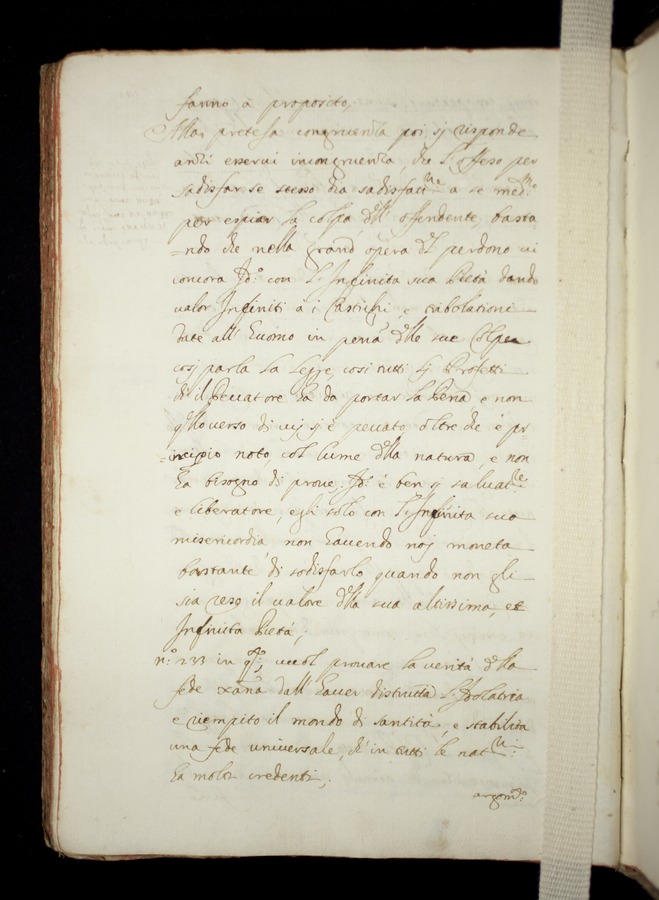 fanno à proposito,
Alla, pretesa congruenza poi si risponde
anzi esservi incongruenza, che l'offeso per
sadisfar se stesso dia sadisfati.ne a se med.mo
per espiar la colpa dll' offendente, basta=
=ndo che nella grand' opera dl perdono vi
concora Id.o con l'Infinita sua Pietà dando
valor Infiniti à i Castighi, e tribolationi
date all' Huomo in pena dlle sue Colpe
così parla la legge, così tutti li Profetti
ch' il Peccatore ha da portar la Pena e non
q'llo verso di cuj si è peccato, oltre che è pr=
=incipio noto col lume dlla natura, e non
ha bisogno di prove, Id.o è ben sì salvat.re
e liberatore, egli solo con l'Infinita sua
misericordia non havendo noj moneta
bastante di sodisfarlo quando non gli
sia reso il valore dlla sua altissima, et
Infinita Pietà,
n.o 233 in q.to, vuol provare la verità dlla
fede xana dall' haver distrutta l'Idolatria
e riempito il mondo di santità, e stabilita
una fede universale, ch' in tutti le nat.ni
ha molti credenti,
argom.to